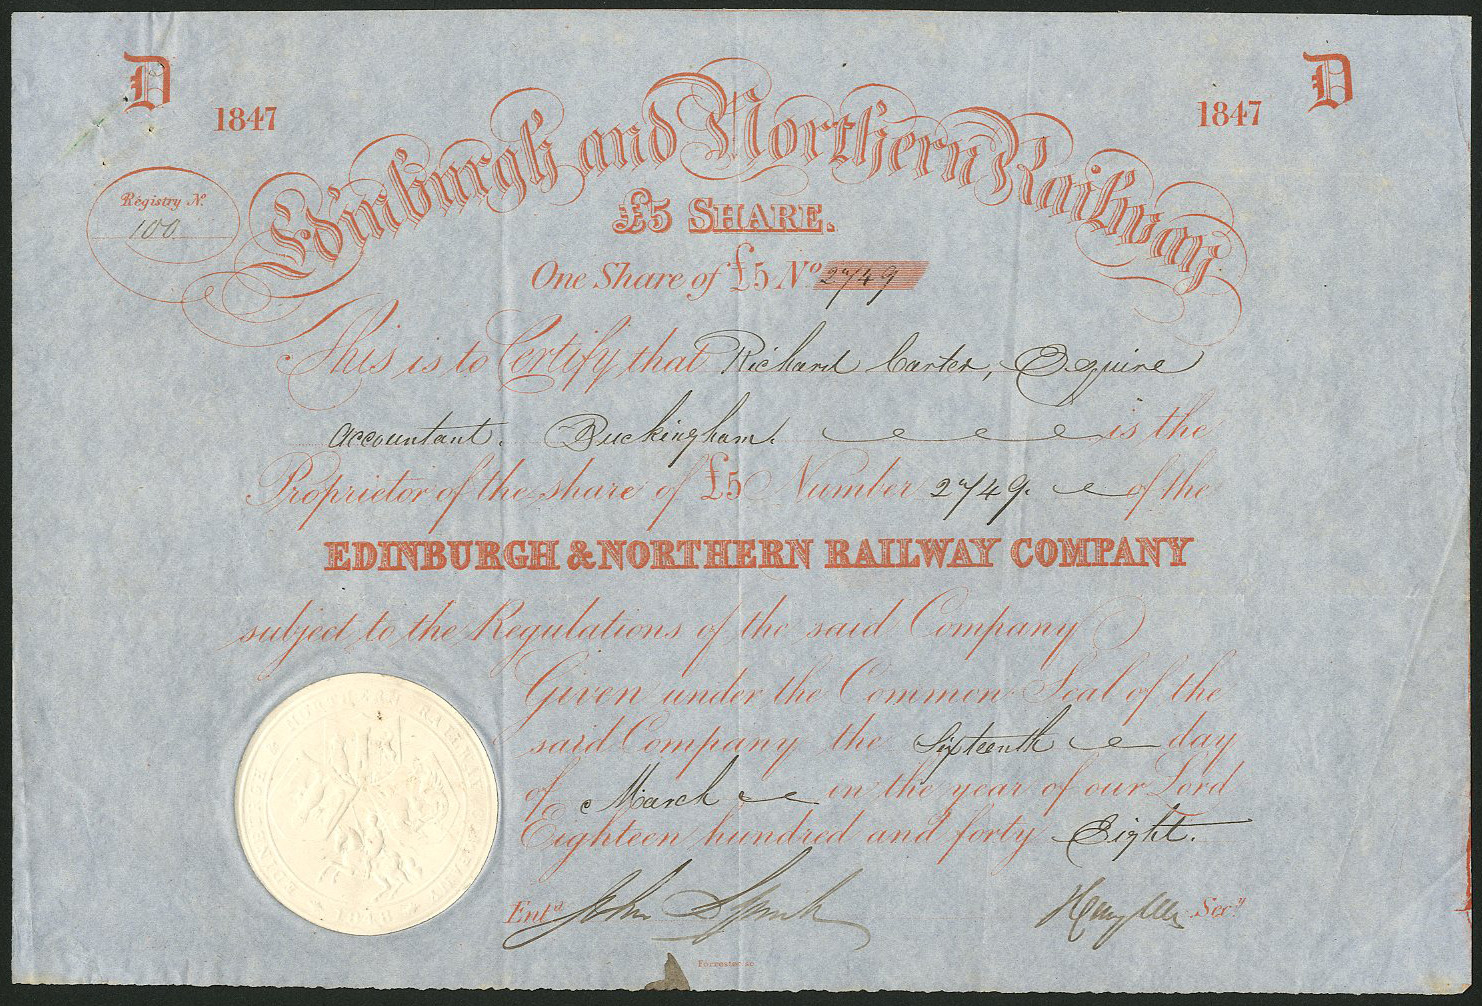 D D
1847 1847
Edinburgh and Northern Railway.
Registry No.
100
£5 SHARE.
One Share of £5 No 2749
This is to Certify that Richard Carter, Esquire
Accountant. Buckingham. is the
Proprietor of the share of £5 Number 2749. of the
EDINBURGH & NORTHERN RAILWAY COMPANY
subject to the Regulations of the said Company
Given under the Common Seal of the
said Company the Sixteenth day
of March in the year of our Lord
Eighteen hundred and forty Eight.
Entd John Secy
Forrester sc
EDINBURGH & NORTHERN RAILWAY